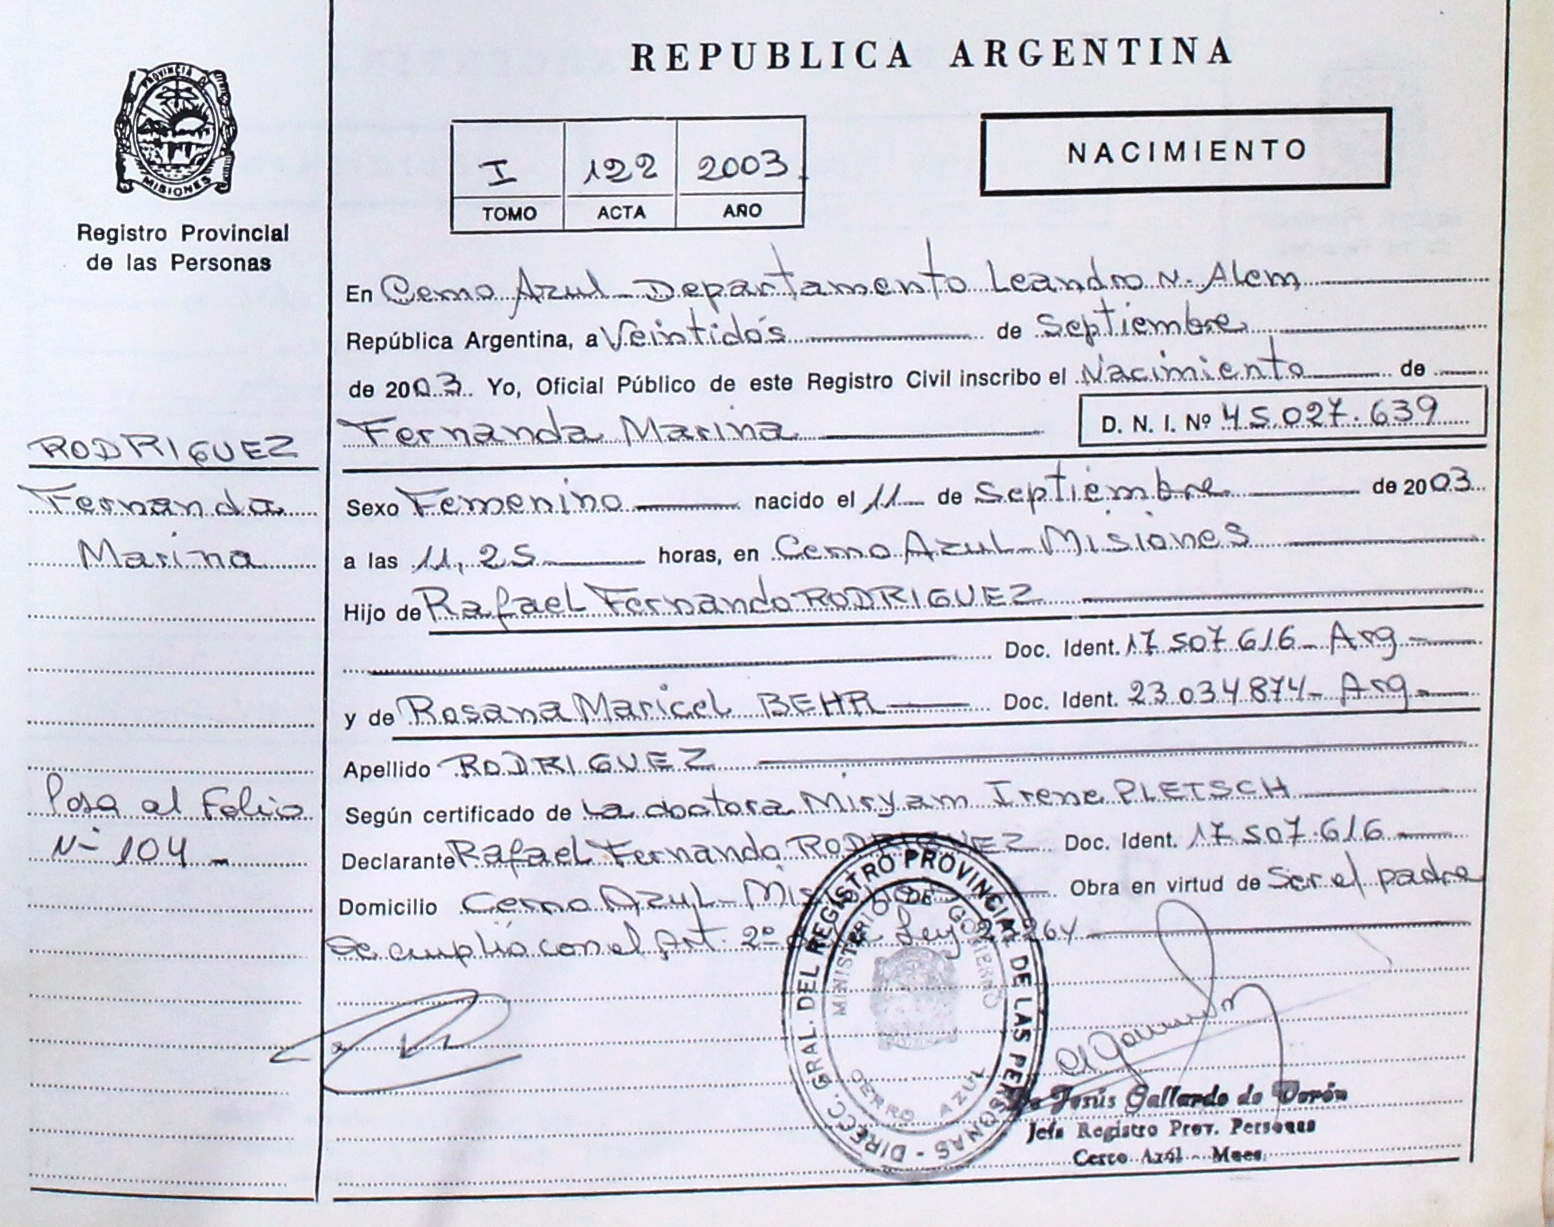 REPUBLICA ARGENTINA
PROVINCIA D
MISIONES
Registro Provincial
de las Personas
I 122 2003
TOMO ACTA AÑO
NACIMIENTO
En Cerro Azul - Departamento Leandro N. Alem
República Argentina, a Veintidós de Septiembre
de 2003. Yo, Oficial Público de este Registro Civil inscribo el Nacimiento de
Fernanda Marina D. N. I. Nº 45.027.639
RODRIGUEZ
Fernanda
Marina
Sexo Femenino nacido el 11 de Septiembre de 2003
a las 11,25 horas, en Cerro Azul - Misiones
Hijo de Rafael Fernando RODRIGUEZ
Doc. Ident. 17.507.616 - Arg -
y de Rosana Maricel BEHR Doc. Ident. 23.034.874 - Arg. -
Apellido RODRIGUEZ
Pasa al Folio
Nº 104 -
Según certificado de La doctora Miryam Irene PLETSCH
Declarante Rafael Fernando RODRIGUEZ Doc. Ident. 17.507.616 -
Domicilio Cerro Azul - Misiones Obra en virtud de Ser el padre
Se cumplió con el Art. 2º de la Ley 23264 -
DIRECC. GRAL. DEL REGISTRO PROVINCIAL DE LAS PERSONAS -
MINISTERIO DE GOBIERNO
CERRO AZUL
Jesús Gallardo de Verón
Jefa Registro Prov. Personas
Cerro Azúl - Mnes.